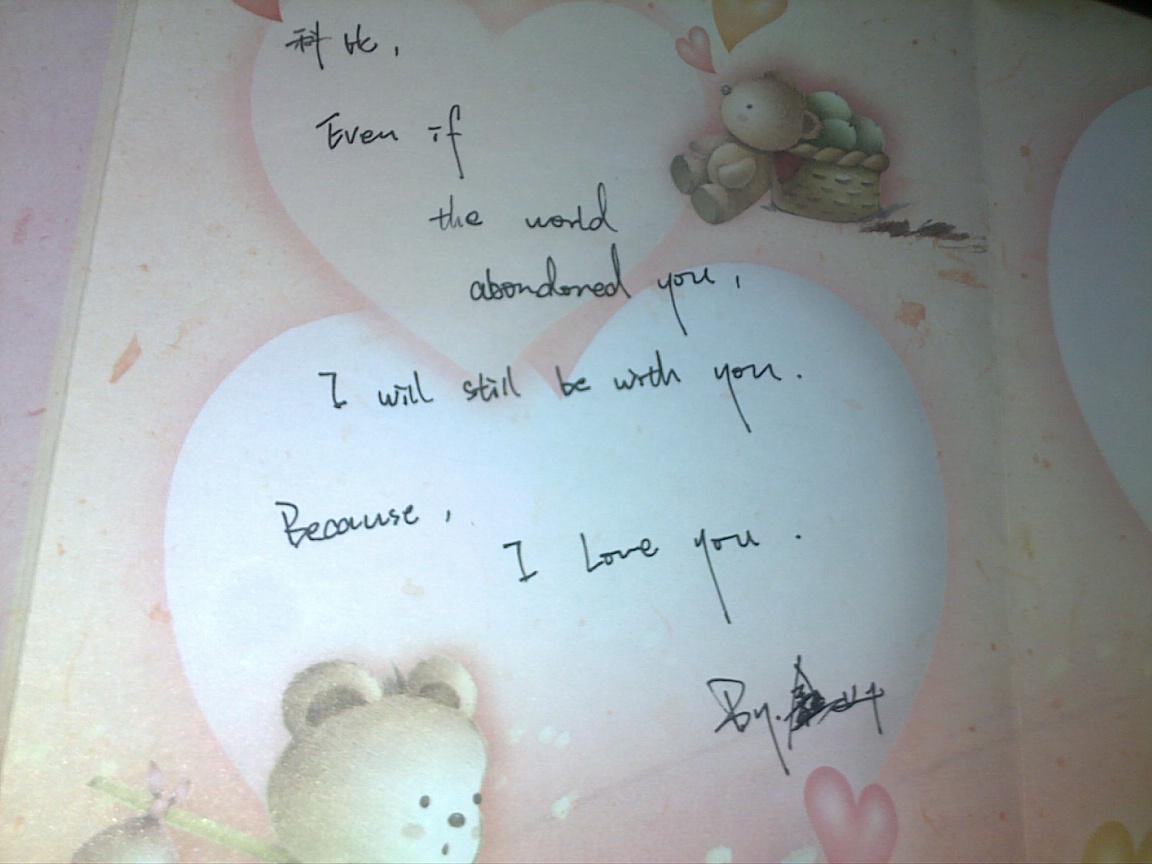 科比,
Even if
the world
abondoned you,
I will still be with you.
Because,
I Love you.
By.